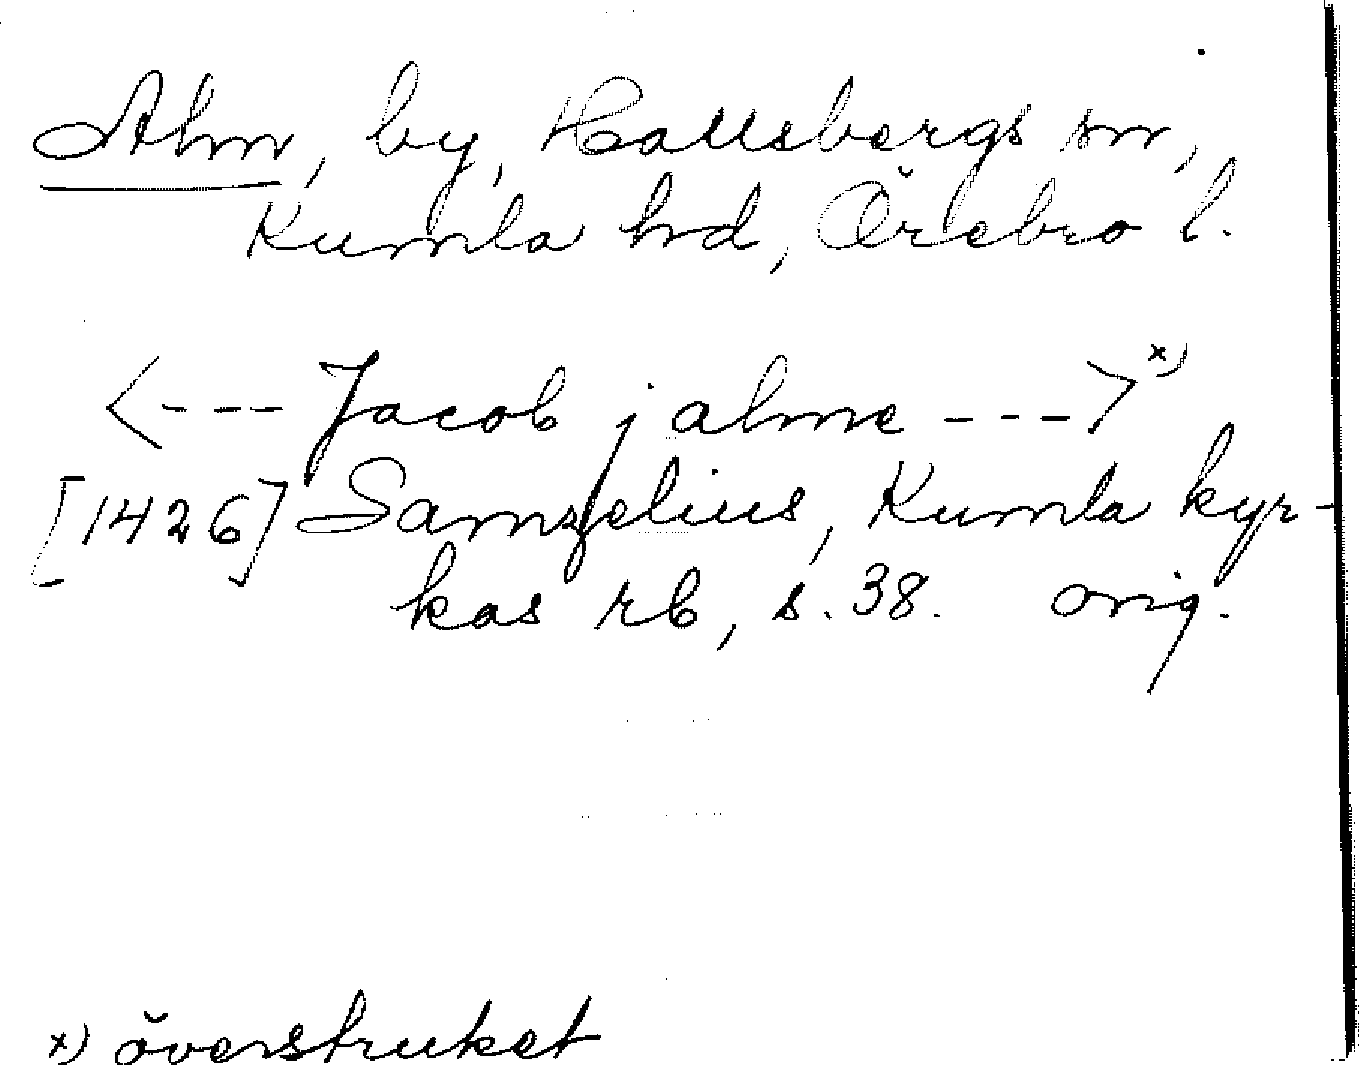 Alm, by, Hallsbergs sn,
Kumla hd, Örebro l.
<--- Jacob j alme --->x)
[1426] Samzelius, Kumla kyr-
kas rb, s. 38. orig.
x) överstruket